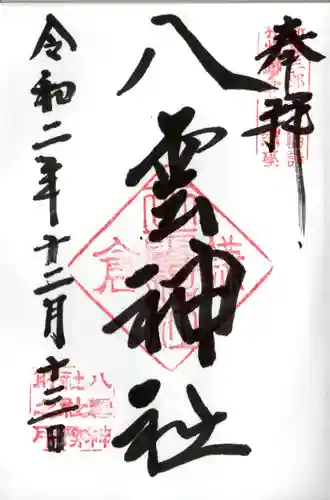 奉拝
八雲神社
令和二年十二月十三日